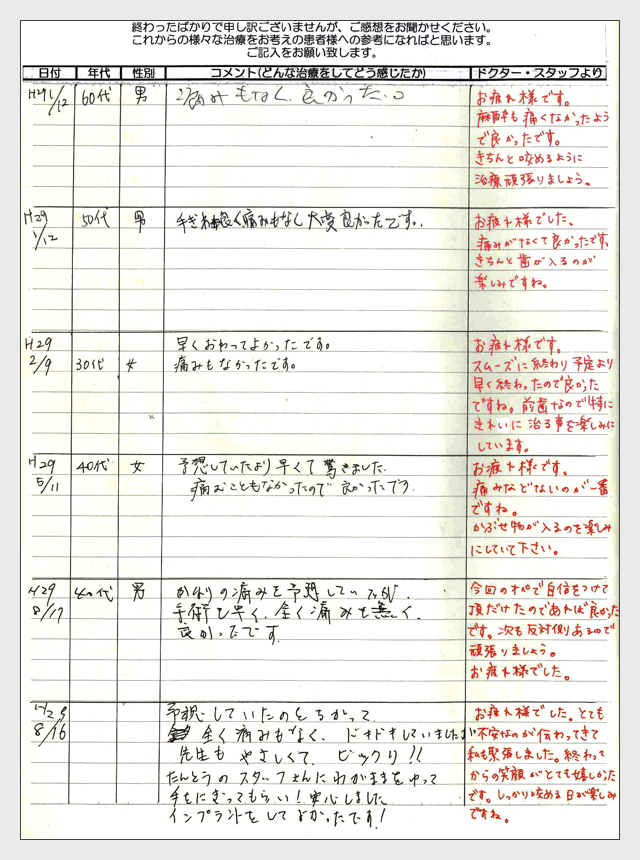 終わったばかりで申し訳ございませんが、ご感想をお聞かせください。
これからの様々な治療をお考えの患者様への参考になればと思います。
ご記入をお願い致します。
日付 年代 性別 コメント(どんな治療をしてどう感じたか) ドクター・スタッフより
H29 1/12 60代 男 痛みもなく、良かった
お疲れ様です。
麻酔も痛くなかったよう
で良かったです。
きちんと咬めるように
治療頑張りましょう。
H29 1/12 50代 男 手ぎわ良く痛みもなく大変良かったです。
お疲れ様でした、
痛みがなくて良かったです。
きちんと歯が入るのが
楽しみですね。
H29 2/9 30代 女
早くおわってよかったです。
痛みもなかったです。
お疲れ様です。
スムーズに終わり予定より
早く終わったので良かった
ですね。前歯なので特に
きれいに治る事を楽しみに
しています。
H29 5/11 40代 女
予想していたより早くて驚きました。
痛むこともなかったので良かったです
お疲れ様です。
痛みなどないのが一番
ですね。
かぶせ物が入るのを楽しみ
にしていて下さい。
H29 8/17 40代 男
かなりの痛みを予想していたが、
手術も早く、全く痛みも無く、
良かったです。
今回のオペで自信をつけて
頂だけたのであれば良かった
です。次も反対側あるので
頑張りましょう。
お疲れ様でした。
H29 8/16
予想していたのとちがって、
全く痛みもなく、ドキドキしていましたが
先生も やさしくて、ビックリ!!
たんとうのスタッフさんにわがままをゆって
手をにぎってもらい!安心しました
インプラントをしてよかったです!
お疲れ様でした。とても
不安なのが伝わってきて
私も緊張しました。終わって
からの笑顔がとても嬉しかった
です。しっかり咬める日が楽しみ
ですね。